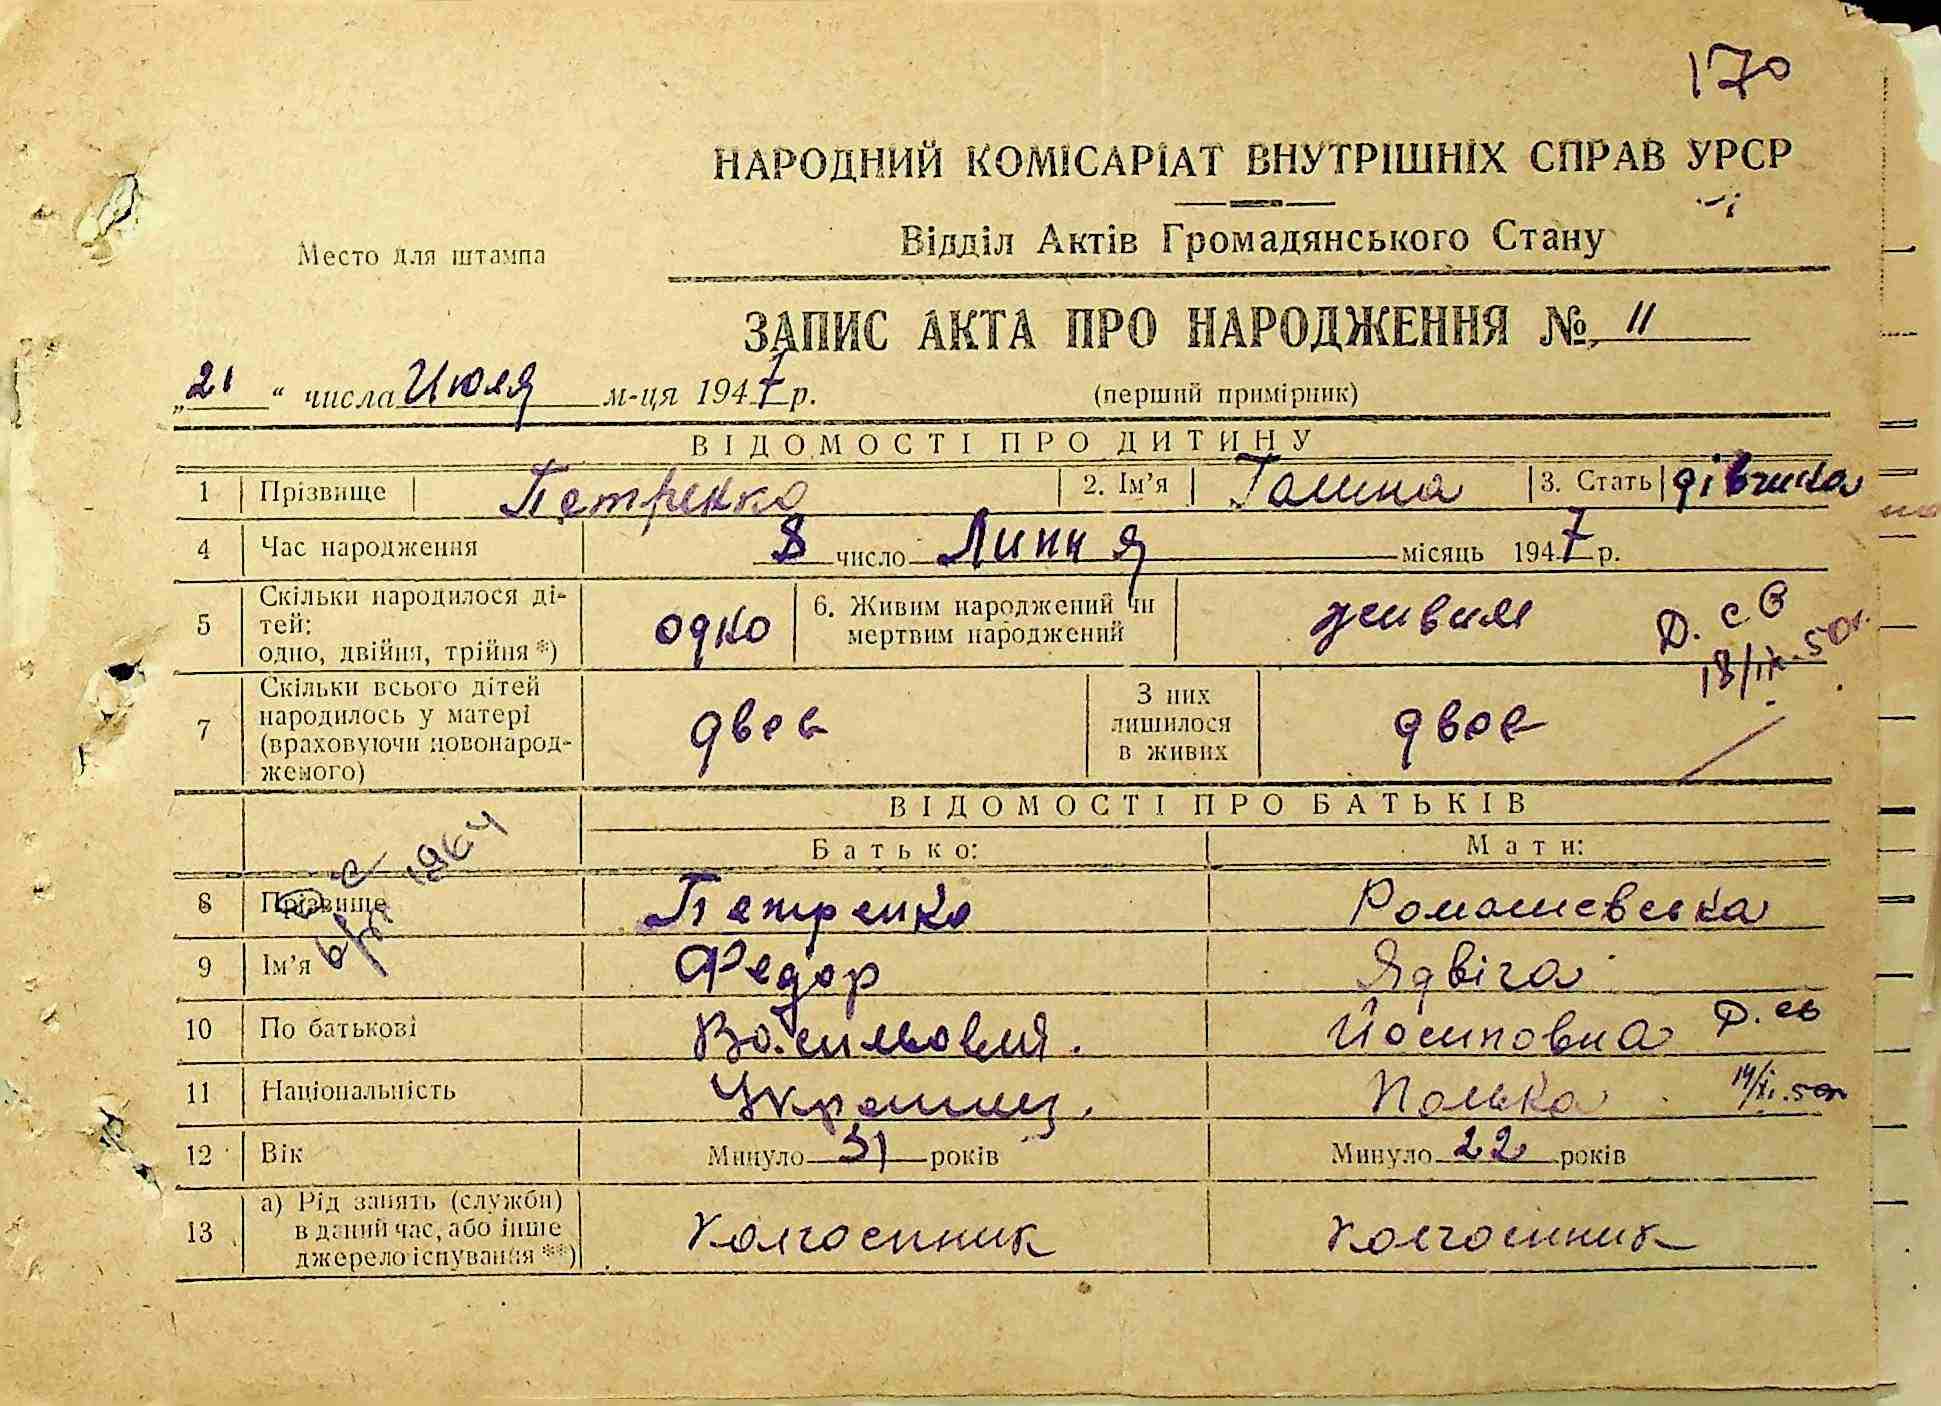 170
НАРОДНИЙ КОМІСАРІАТ ВНУТРІШНІХ СПРАВ УРСР
Відділ Актів Громадянського Стану
Место для штампа
ЗАПИС АКТА ПРО НАРОДЖЕННЯ № 11
„21“ числа Июля м-ця 1947 р. (перший примірник)
ВІДОМОСТІ ПРО ДИТИНУ
1 Прізвище Петренко 2. Ім’я Галина 3. Стать дівчина
4 Час народження 8 число Липня місяць 1947 р.
5 Скільки народилося ді-
тей:
одно, двійня, трійня *)
одно
6. Живим народжений чи
мертвим народжений
живим
Д. С В
18/IX. 50 г.
7 Скільки всього дітей
народилось у матері
(враховуючи новонарод-
женого)
двое
З них
лишилося
в живих
двое
ВІДОМОСТІ ПРО БАТЬКІВ
Батько: Мати:
1964
8 Прізвище Петренко Ромашевська
9 Ім’я Федор Ядвіга
10 По батькові Васильович. Йосиповна Д. св
11 Національність Украинец. Полька 14/XI. 50г
12 Вік Минуло 31 років Минуло 22 років
13 а) Рід занять (служби)
в даний час, або інше
джерело існування **)
Колгоспник Колгоспник